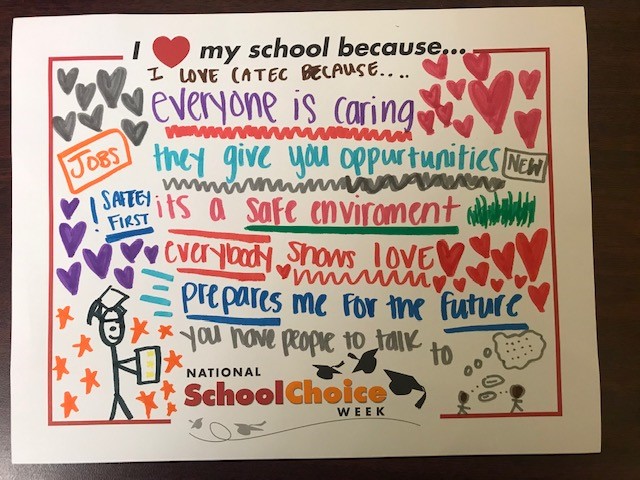 I ❤ my school because...
I LOVE CATEC BECAUSE....
everyone is caring
JOBS
they give you oppurtunities
NEW
! SAFTEY
FIRST
its a safe enviroment
everybody shows love
prepares me for the future
you have people to talk to
NATIONAL
SchoolChoice
WEEK